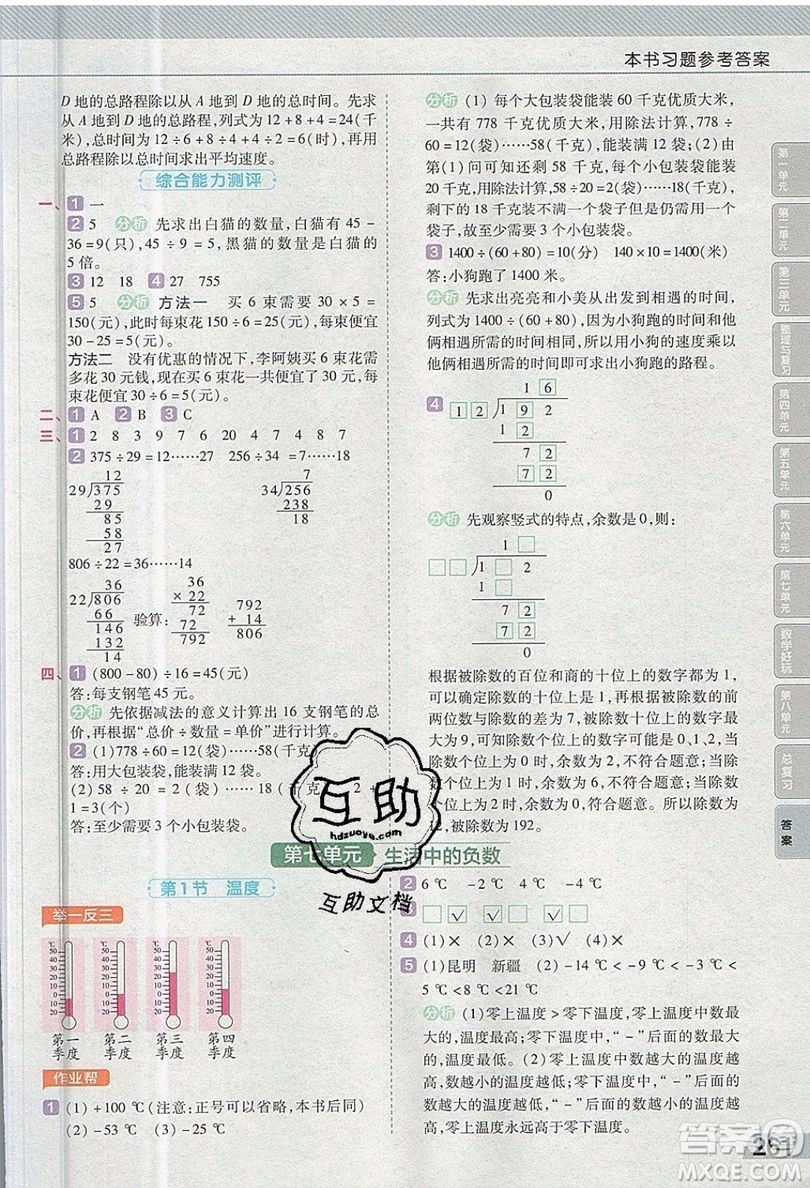 本书习题参考答案
D 地的总路程除以从 A 地到 D 地的总时间。先求
从 A 地到 D 地的总路程,列式为 12+8+4=24(千
米),总时间为 12÷6+8÷4+4÷2=6(时),再用
总路程除以总时间求出平均速度。
综合能力测评
一、1 一
2 5 分析 先求出白猫的数量,白猫有 45-
36=9(只),45÷9=5,黑猫的数量是白猫的
5 倍。
3 12 18 4 27 755
5 5 分析 方法一 买 6 束需要 30×5=
150(元),此时每束花 150÷6=25(元),每束便宜
30-25=5(元)。
方法二 没有优惠的情况下,李阿姨买 6 束花需
多花 30 元钱,现在买 6 束花一共便宜了 30 元,因
此每束花便宜 30÷6=5(元)。
二、1 A 2 B 3 C
三、1 1 2 8 3 9 7 6 20 4 7 4 8 7
2 375÷29=12……27 256÷34=7……18
12
29)375
29
85
58
27
7
34)256
238
18
806÷22=36……14
36
22)806
66
146
132
14
验算:
36
×22
72
72
792
792
+14
806
四、1 (800-80)÷16=45(元)
答:每支钢笔 45 元。
分析 先依据减法的意义计算出 16 支钢笔的总
价,再根据“总价÷数量=单价”进行计算。
2 (1)778÷60=12(袋)……58(千克)
答:用大包装袋,能装满 12 袋。
(2)58÷20=2(袋)……18(千克) 2+
1=3(个)
答:至少需要 3 个小包装袋。
分析 (1)每个大包装袋能装 60 千克优质大米,
一共有 778 千克优质大米,用除法计算,778÷
60=12(袋)……58(千克),能装满 12 袋;(2)由
第(1)问可知还剩 58 千克,每个小包装袋能装
20 千克,用除法计算,58÷20=2(袋)……18(千克),
剩下的 18 千克优质大米也需要用一个小包装
袋子,故至少需要 3 个小包装袋。
3 1400÷(60+80)=10(分) 140×10=1400(米)
答:小狗跑了 1400 米。
分析 先求出亮亮和小美从出发到相遇的时间,
列式为 1400÷(60+80),因为小狗跑的时间和他
俩相遇所需的时间相同,所以用小狗的速度乘以
他俩相遇所需的时间即可求出小狗跑的路程。
4
1 6
1 2)1 9 2
1 2
7 2
7 2
0
分析 先观察竖式的特点,余数是 0,则:
1 □
□□)1 □ 2
□□
7 2
7 2
0
根据被除数的百位和商的十位上的数字都为 1,
可以确定除数的十位上的数字为 1,被除数的前
两位数与除数的差为 7,因为被除数十位上的数字
最大为 9,可知除数个位上的数字可能是 0,1,2,
当除数个位上是 0 时,余数不为 0,不符合题意;当除
数个位上是 1 时,余数不为 0,不符合题意;当除
数个位上是 2 时,余数为 0,符合题意。所以,除数为
12,被除数为 192。
互助
hdzuoye.com
互助文档
第七单元 生活中的负数
第1节 温度
举一反三
第一季度
第二季度
第三季度
第四季度
作业帮
1 (1)+100 ℃(注意:正号可以省略,本书后同)
(2)-53 ℃ (3)-25 ℃
2 6 ℃ -2 ℃ -4 ℃ -4 ℃
3 □ ☑ ☑ □ □ ☑
4 (1)× (2)× (3)√ (4)×
5 (1)昆明 新疆 (2)-14 ℃<-9 ℃<-
5 ℃<8 ℃<9 ℃<21 ℃
分析 (1)零上温度>零下温度,零上温度中数最
大的,温度最高;零下温度中,“-”后面的数最大
的,温度最低。(2)零上温度中,数越大的温度越
高,数越小的温度越低;零下温度中,“-”后面的
数越大的温度越低,“-”后面的数越小的温度越
高;零上温度永远高于零下温度。
第一单元
第二单元
第三单元
整理与复习
第四单元
第五单元
第六单元
第七单元
数学好玩
第八单元
总复习
答案
261
答案圈
MXQE.COM